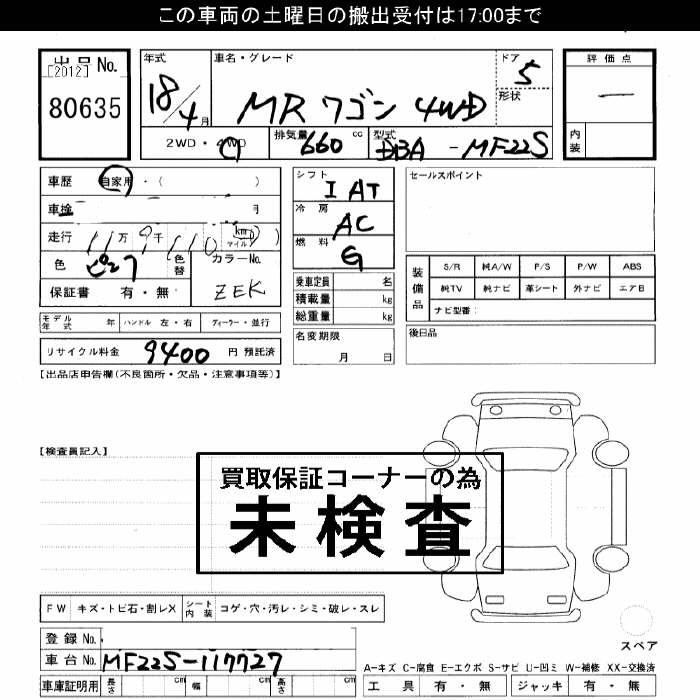 この車両の土曜日の搬出受付は17:00まで
出品 No.
[2012]
80635
年式
18/4月
車名・グレード
MR ワゴン 4WD
ドア
5
形状
評価点
—
内装
2WD・4WD
排気量 660 cc
型式 DBA - MF22S
車歴 自家用・( )
車検
走行 11万9千110 km マイル
色 ピンク
色替
カラーNo.
ZEK
保証書 有・無
シフト
I AT
冷房
AC
燃料
G
乗車定員 名
積載量 kg
総重量 kg
名変期限
月 日
セールスポイント
装備品
S/R 純A/W P/S P/W ABS
純TV 純ナビ 革シート 外ナビ エアB
ナビ型番:
後日品
モデル年式 年 ハンドル 左・右 ディーラー・並行
リサイクル料金 9400 円 預託済
【出品店申告欄(不良箇所・欠品・注意事項等)】
【検査員記入】
買取保証コーナーの為
未検査
FW キズ・トビ石・割レX シート内装 コゲ・穴・汚レ・シミ・破レ・スレ
登録 No.
車台 No. MF22S-117727
車庫証明用 長さ cm 幅 cm 高さ cm
スペア
A-キズ C-腐食 E-エクボ S-サビ U-凹ミ W-補修 XX-交換済
工具 有・無 ジャッキ 有・無